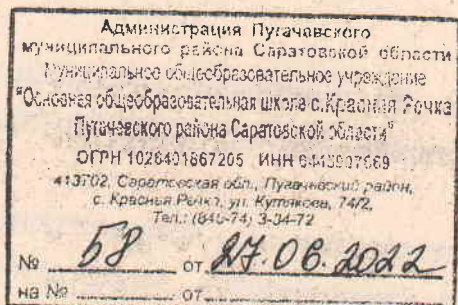 Администрация Пугачевского
муниципального района Саратовской области
Муниципальное общеобразовательное учреждение
"Основная общеобразовательная школа с.Красная Речка
Пугачевского района Саратовской области"
ОГРН 1026401867205 ИНН
413702, Саратовская обл., Пугачевский район,
с. Красная Речка, ул. Кутякова, 74/2,
Тел.: (845-74) 3-34-72
№ 58 от 27.06.2022
на № от